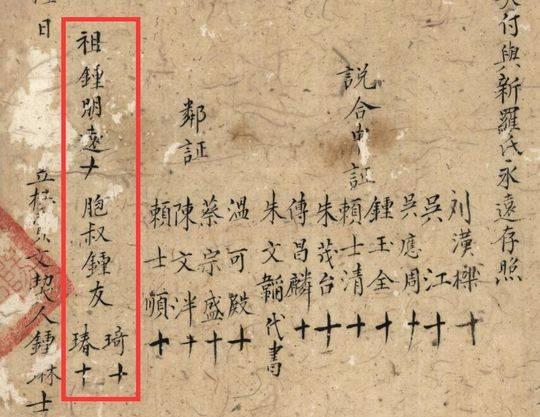 付與新羅氏永遠存照
説合中証
刘漢十
吳江十
吳應周十
鍾玉全十
賴士清十
朱茂台十
傅昌麟十
朱文韜代書
鄰証
溫可殿十
蔡宗盛十
陳文泮十
賴士順十
祖鍾朋遠十 胞叔鍾友 琦十 瑃十
立文契人鍾琳士
日